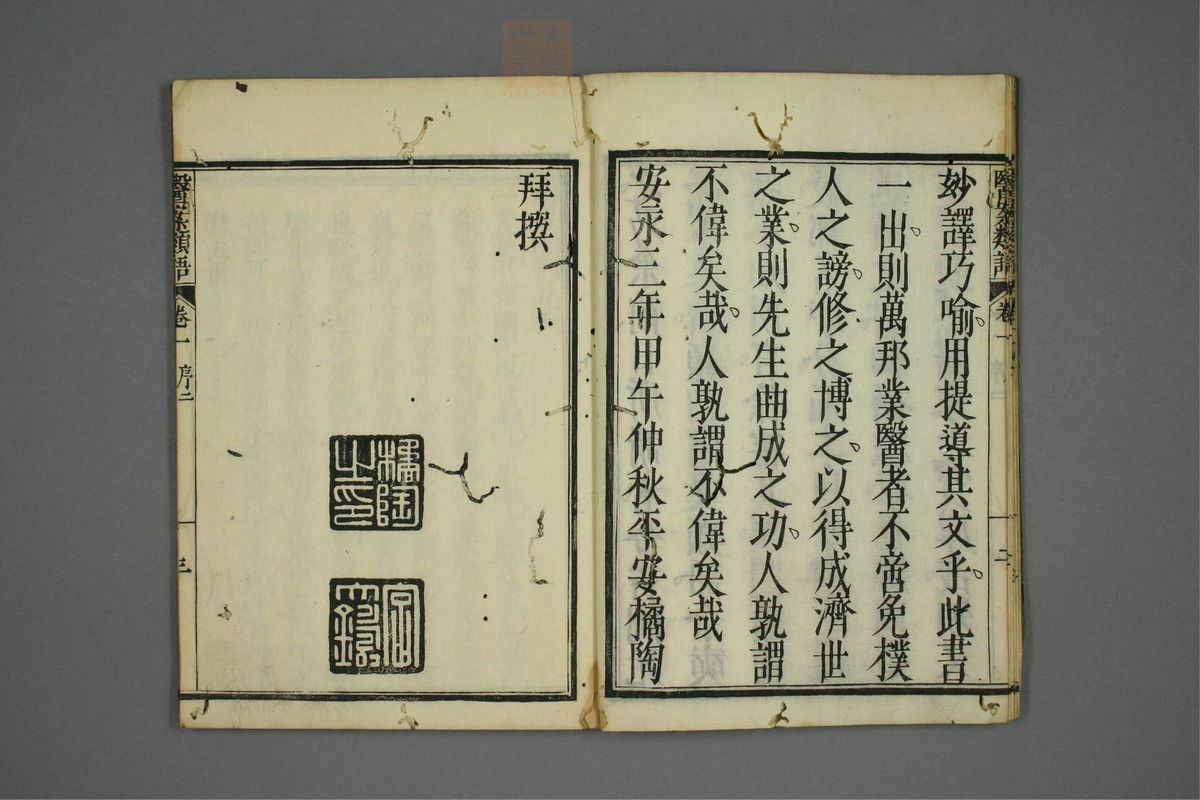 妙譯巧喻。用提導其文乎。此書
一出。則萬邦業醫者不啻免樸
人之謗。修之博之。以得成濟世
之業。則先生曲成之功。人孰謂
不偉矣哉。人孰謂不偉矣哉
安永三年甲午仲秋平安橘陶
拜撰
橘陶之印
醫案類語
卷一
序二
三
醫案類語
卷一
二